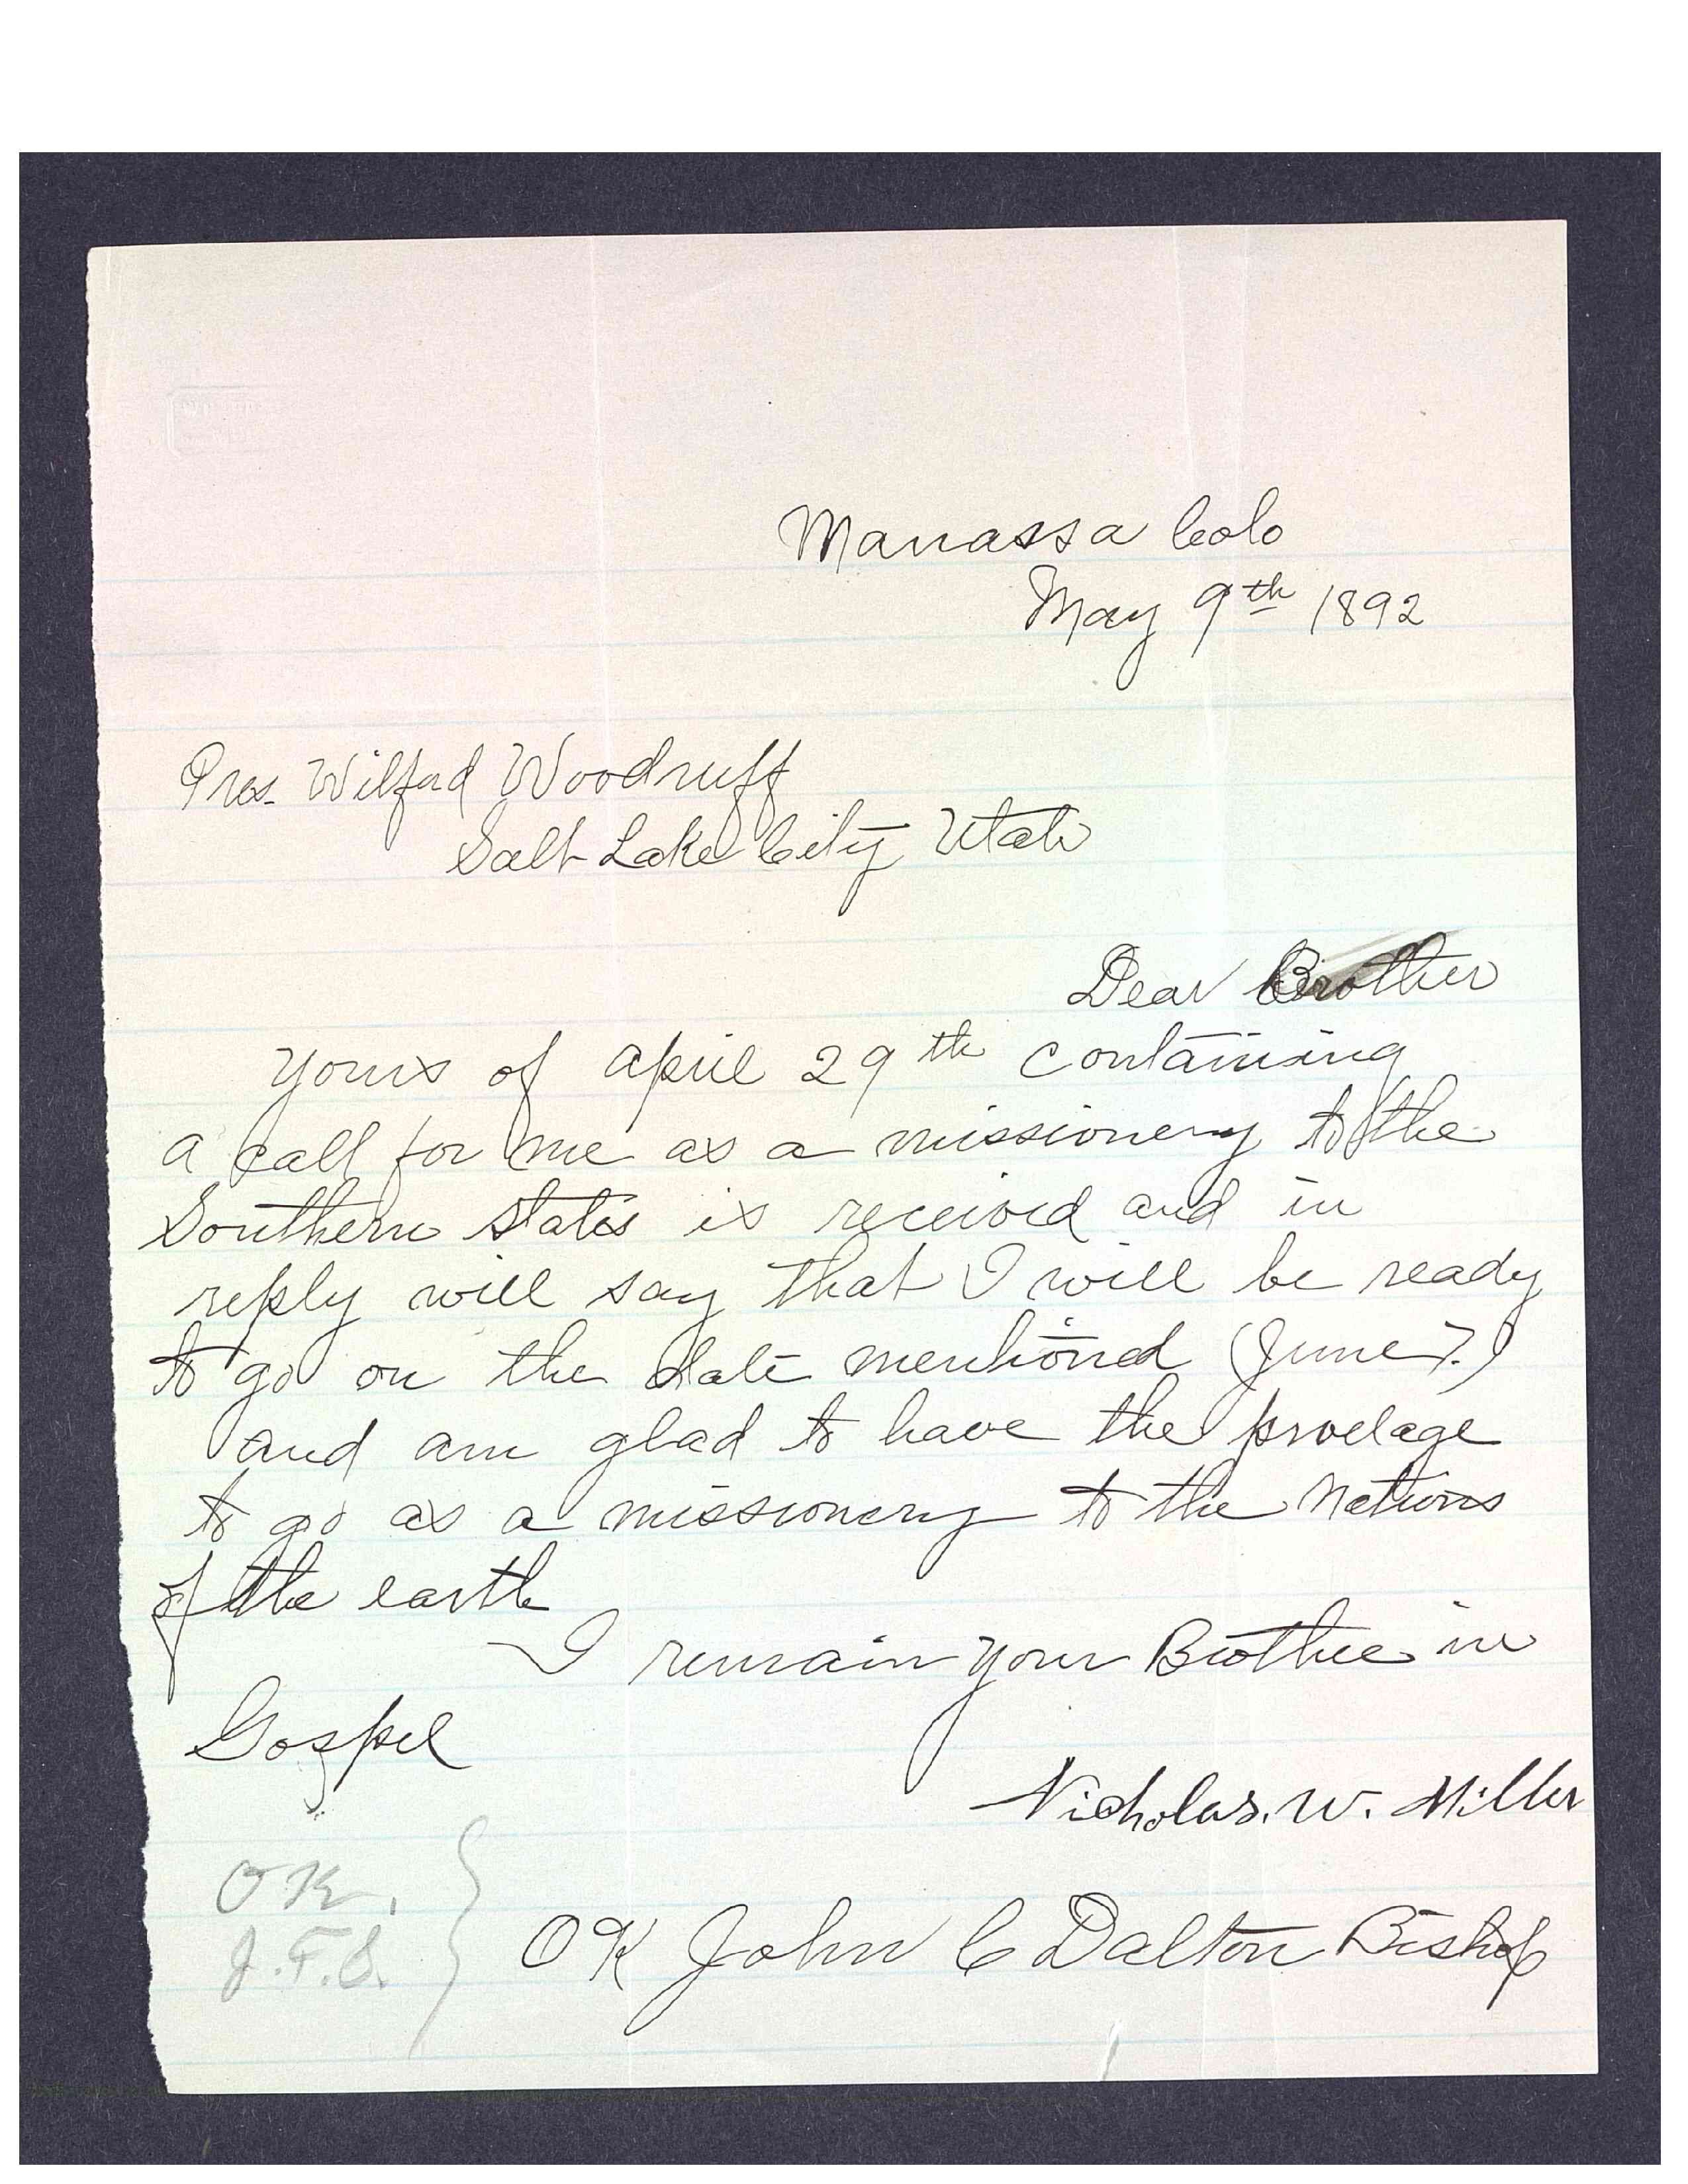 Manassa Colo
May 9th 1892
Pres. Wilford Woodruff
Salt Lake City Utah
Dear Brother
Yours of April 29th containing
a call for me as a missionery to the
Southern States is received and in
reply will say that I will be ready
to go on the date mentioned (June 7.)
and am glad to have the provelage
to go as a missionery to the Nations
of the earth
I remain your Brother in
Gospel
Nicholas. W. Miller
OK.
J.F.S.
OK John C Dalton Bishop